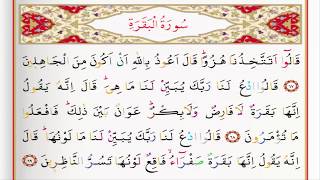 سُورَةُ الْبَقَرَةِ
قَالُٓوا اَتَتَّخِذُنَا هُزُوًاۜ قَالَ اَعُوذُ بِاللّٰهِ اَنْ اَكُونَ مِنَ الْجَاهِل۪ينَ
٦٧ قَالُوا ادْعُ لَنَا رَبَّكَ يُبَيِّنْ لَنَا مَا هِيَۜ قَالَ اِنَّهُ يَقُولُ
اِنَّهَا بَقَرَةٌ لَا فَارِضٌ وَلَا بِكْرٌۜ عَوَانٌ بَيْنَ ذٰلِكَۜ فَافْعَلُوا
مَا تُؤْمَرُونَ ٦٨ قَالُوا ادْعُ لَنَا رَبَّكَ يُبَيِّنْ لَنَا مَا لَوْنُهَاۜ قَالَ
اِنَّهُ يَقُولُ اِنَّهَا بَقَرَةٌ صَفْرَٓاءُۙ فَاقِعٌ لَوْنُهَا تَسُرُّ النَّاظِر۪ينَ ٦٩